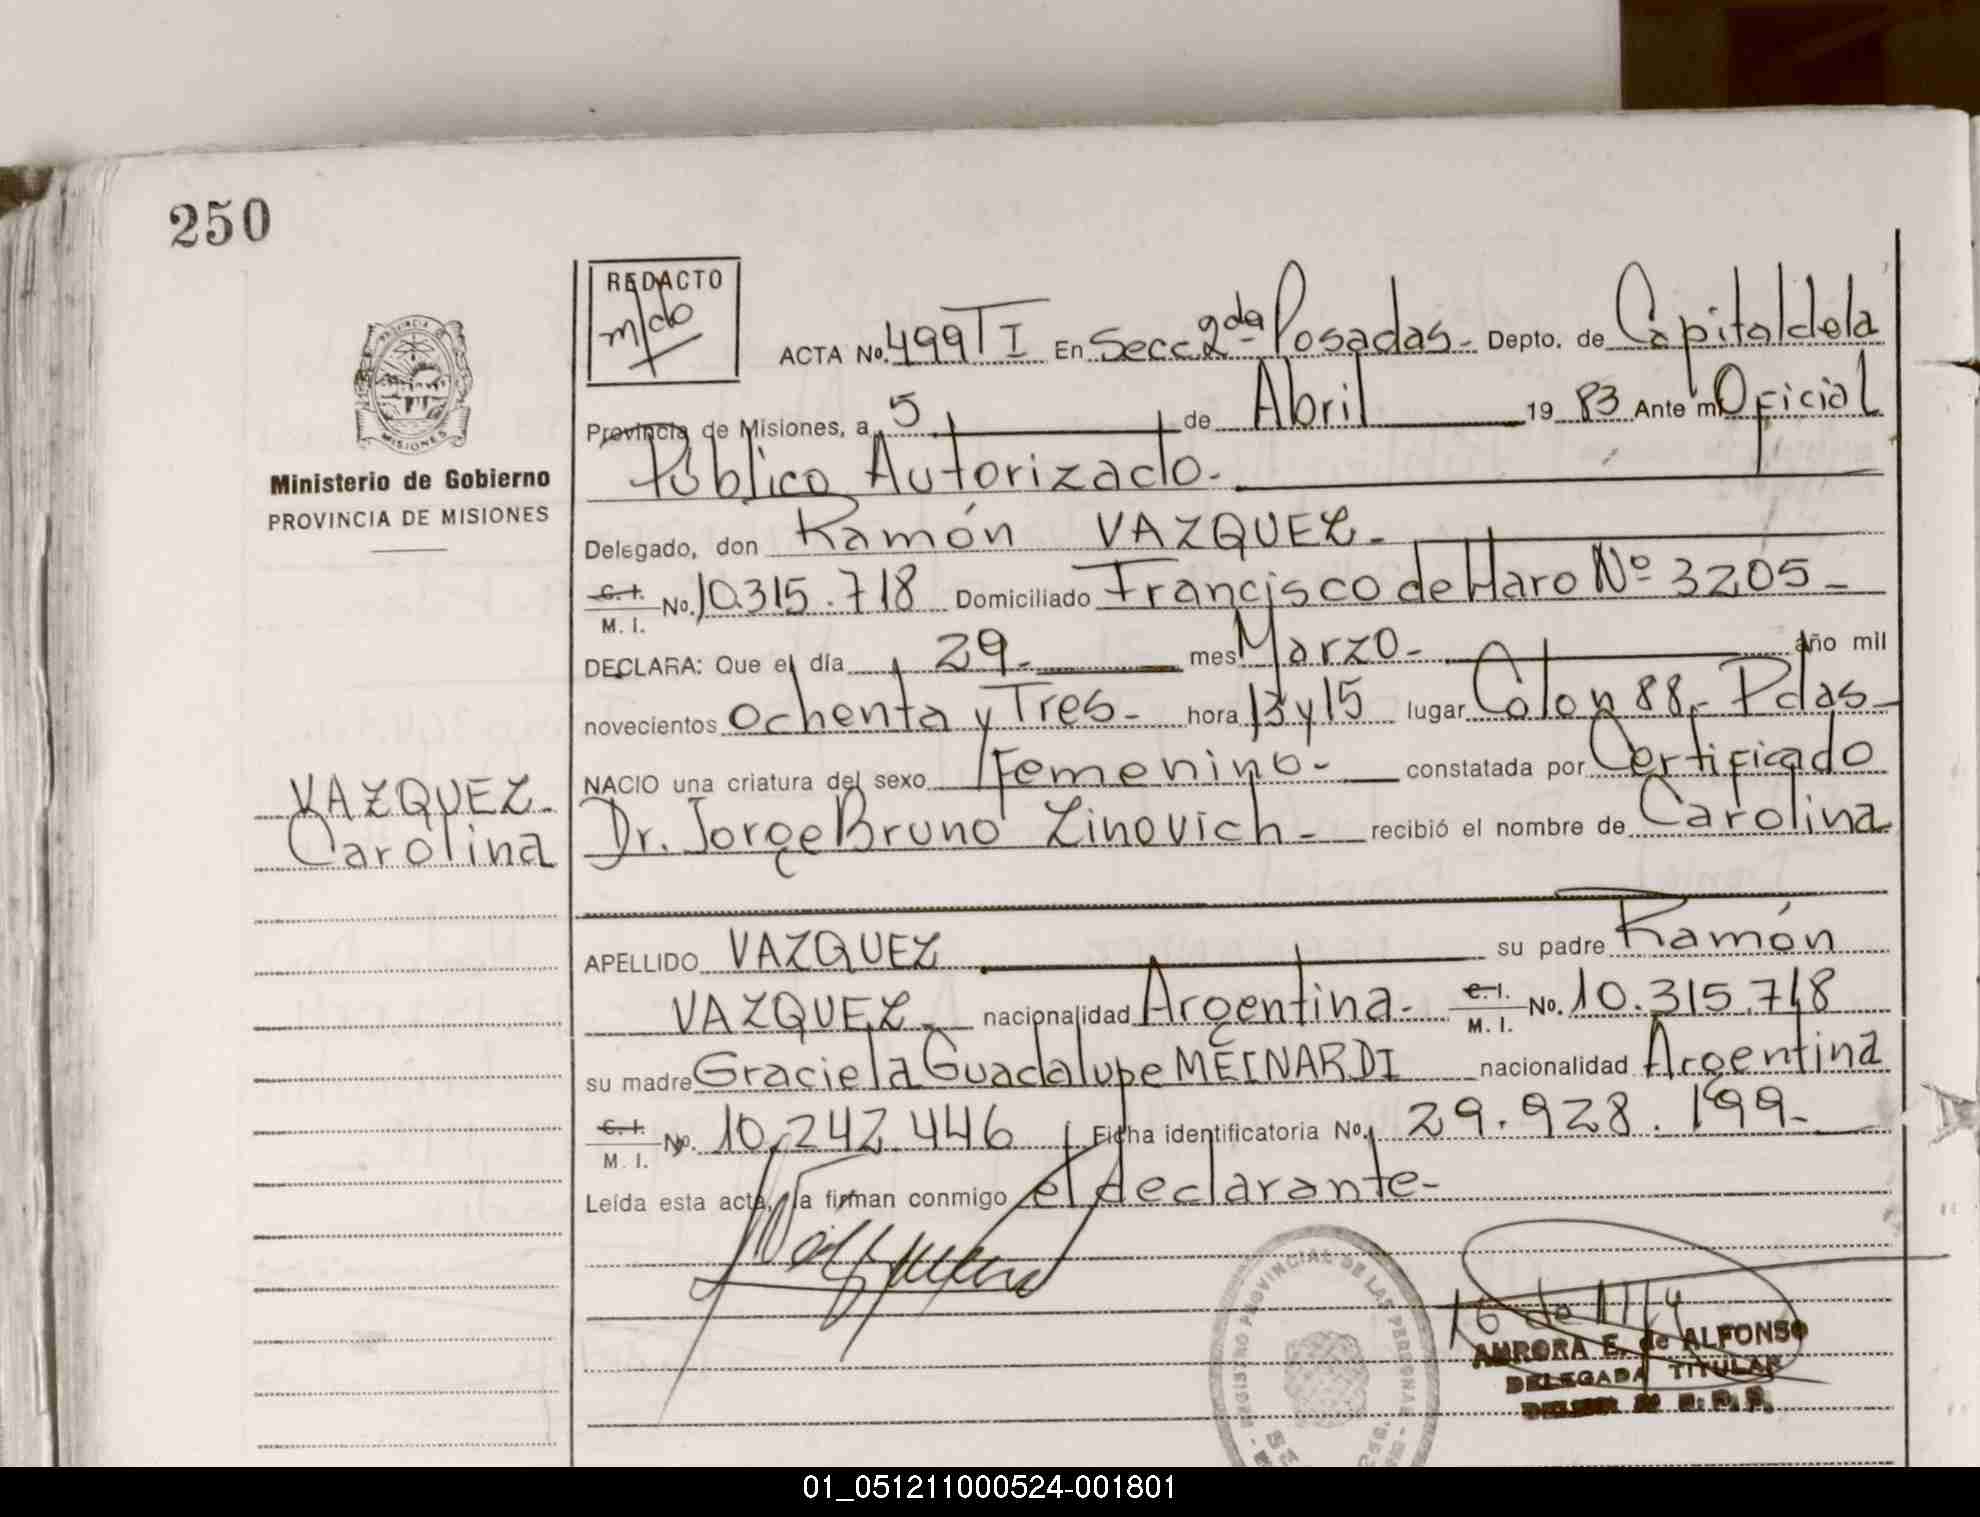 250
REDACTO
ACTA No. 499 T I En Secc. 2da Posadas- Depto. de Capital de la
Provincia de Misiones, a 5 de Abril 19 83 Ante mi Oficial
Público Autorizado.-
Ministerio de Gobierno
PROVINCIA DE MISIONES
Delegado, don Ramón VAZQUEZ.-
C. I.
M. I. No. 10.315.718 Domiciliado Francisco de Haro Nº 3205-
DECLARA: Que el día 29- mes Marzo- año mil
novecientos ochenta y Tres- hora 13 y 15 lugar Colon 88,- Pdas-
NACIO una criatura del sexo Femenino- constatada por Certificado
VAZQUEZ-
Carolina
Dr. Jorge Bruno Zinovich- recibió el nombre de Carolina
APELLIDO VAZQUEZ su padre Ramón
VAZQUEZ- nacionalidad Argentina- C. I.
M. I. No. 10.315.718
su madre Graciela Guadalupe MEINARDI nacionalidad Argentina
C. I.
M. I. No. 10.242.446 Ficha identificatoria No. 29.928.199-
Leída esta acta, la firman conmigo el declarante-
REGISTRO PROVINCIAL DE LAS PERSONAS
AURORA E. de ALFONSO
DELEGADA TITULAR
01_051211000524-001801